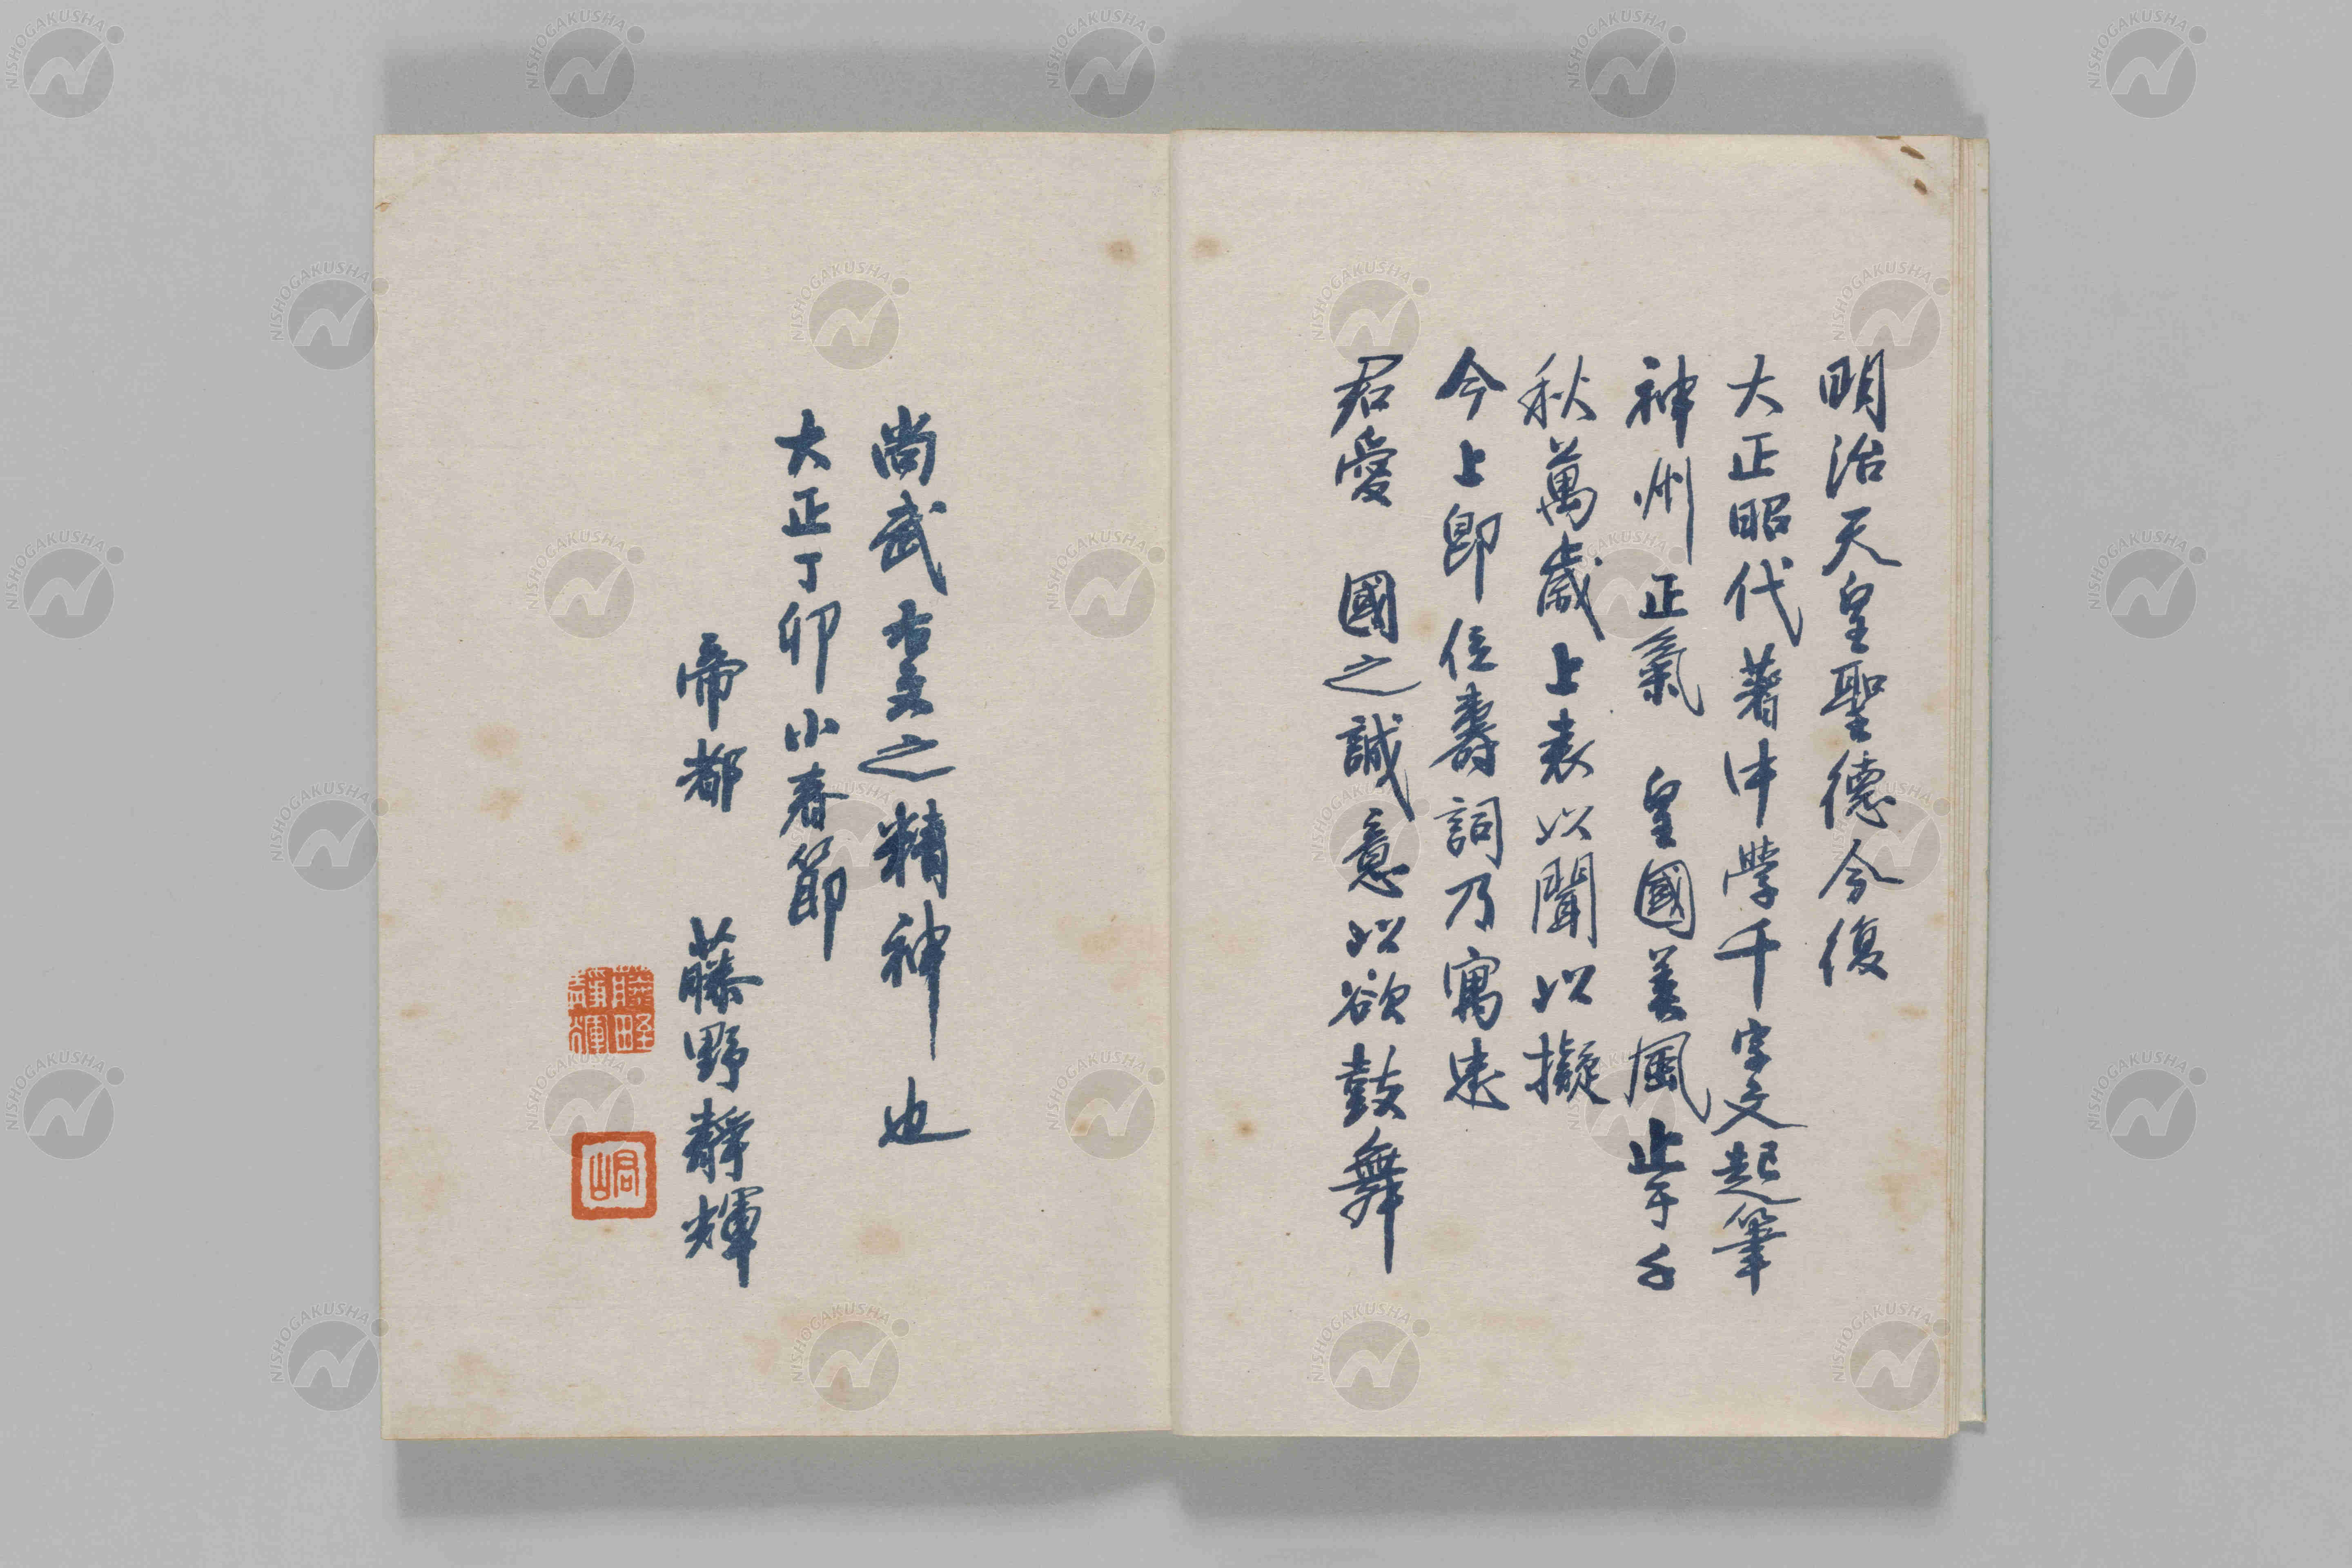 明治天皇聖德今復
大正昭代著中學千字文起筆
神州正氣　皇國美風止筆千
秋萬歲上表以聞以擬
今上卽位壽詞乃寓忠
君愛　國之誠意以欲鼓舞
尚武右文之精神也
大正丁卯小春節
帝都　藤野靜輝
NISHOGAKUSHA